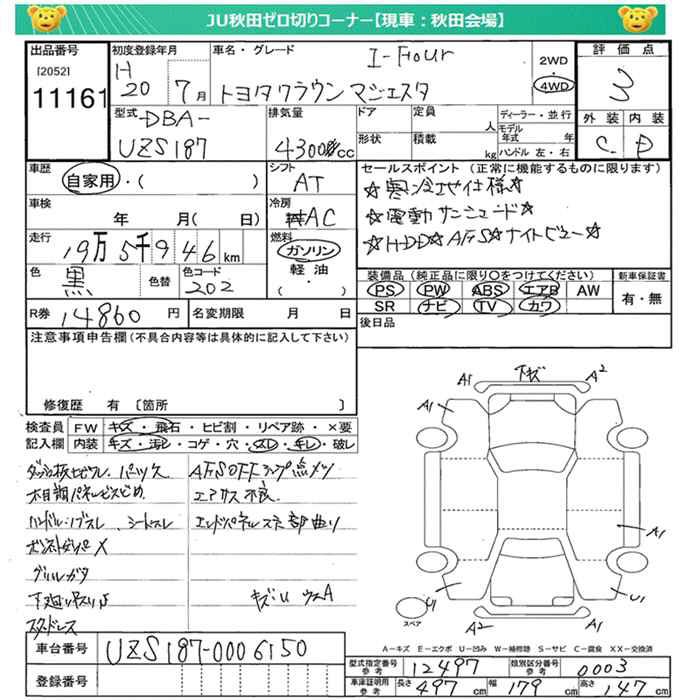 JU秋田ゼロ切りコーナー【現車：秋田会場】
出品番号
[2052]
11161
初度登録年月
H
20 7月
車名・グレード
I-Four
トヨタクラウン マジェスタ
2WD
・
4WD
評価点
3
外装 内装
C D
型式
-DBA-
UZS187
排気量
4300cc
ドア
定員
人
形状
積載
kg
ディーラー・並行
モデル年式 年
ハンドル 左・右
車歴
自家用・( )
シフト
AT
車検
年 月( 日)
冷房
AC
走行
19万5千946km
燃料
ガソリン
軽油
・( )
色
黒
色替
色コード
202
セールスポイント（正常に機能するものに限ります）
☆寒冷地仕様☆
☆電動サンシェード☆
☆HDD☆AFS☆ナイトビュー☆
装備品（純正品に限り〇をつけてください）
新車保証書
PS PW ABS エアB AW
SR ナビ TV カワ
有・無
R券 14860円
名変期限 月 日
後日品
注意事項申告欄（不具合内容等は具体的に記入して下さい）
修復歴 有 〔箇所 〕
検査員記入欄
FW キズ・飛石・ヒビ割・リペア跡・×要
内装 キズ・汚レ・コゲ・穴・スレ・キレ・破レ
AFSOFFランプ点メツ
木目調パネル
エアサス不良
ハンドル・ノブスレ、シートスレ
ボンネットダンパ×
グリルガタ
スタッドレス
キズ・U ウスA
下キズ
A1
A2
A1
A1
A1
U1
U1
A2
A1
スペア
A－キズ E－エクボ U－凹み W－補修跡 S－サビ C－腐食 XX－交換済
車台番号
UZS187-0006150
登録番号
型式指定番号
参考
12497
類別区分番号
参考
0003
車庫証明用
参考
長さ 497cm
幅 179cm
高さ 147cm